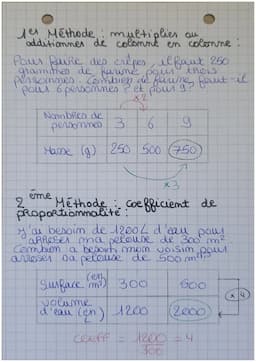 1er Méthode : multiplier ou
additionner de colonne en colonne :
Pour faire des crêpes, il faut 250
grammes de farine pour trois
personnes. Combien de farine faut-il
pour 6 personnes ? et pour 9 ?
x2
Nombres de personnes 3 6 9
Masse (g) 250 500 750
x3
2ème Méthode : Coefficient de
proportionnalité :
J'ai besoin de 1200L d'eau pour
arroser ma pelouse de 300 m².
Combien a besoin mon voisin pour
arroser sa pelouse de 500 m²?
Surface (en m²) 300 500
x 4
volume d'eau (en L) 1200 2000
Coeff = 1200/300 = 4